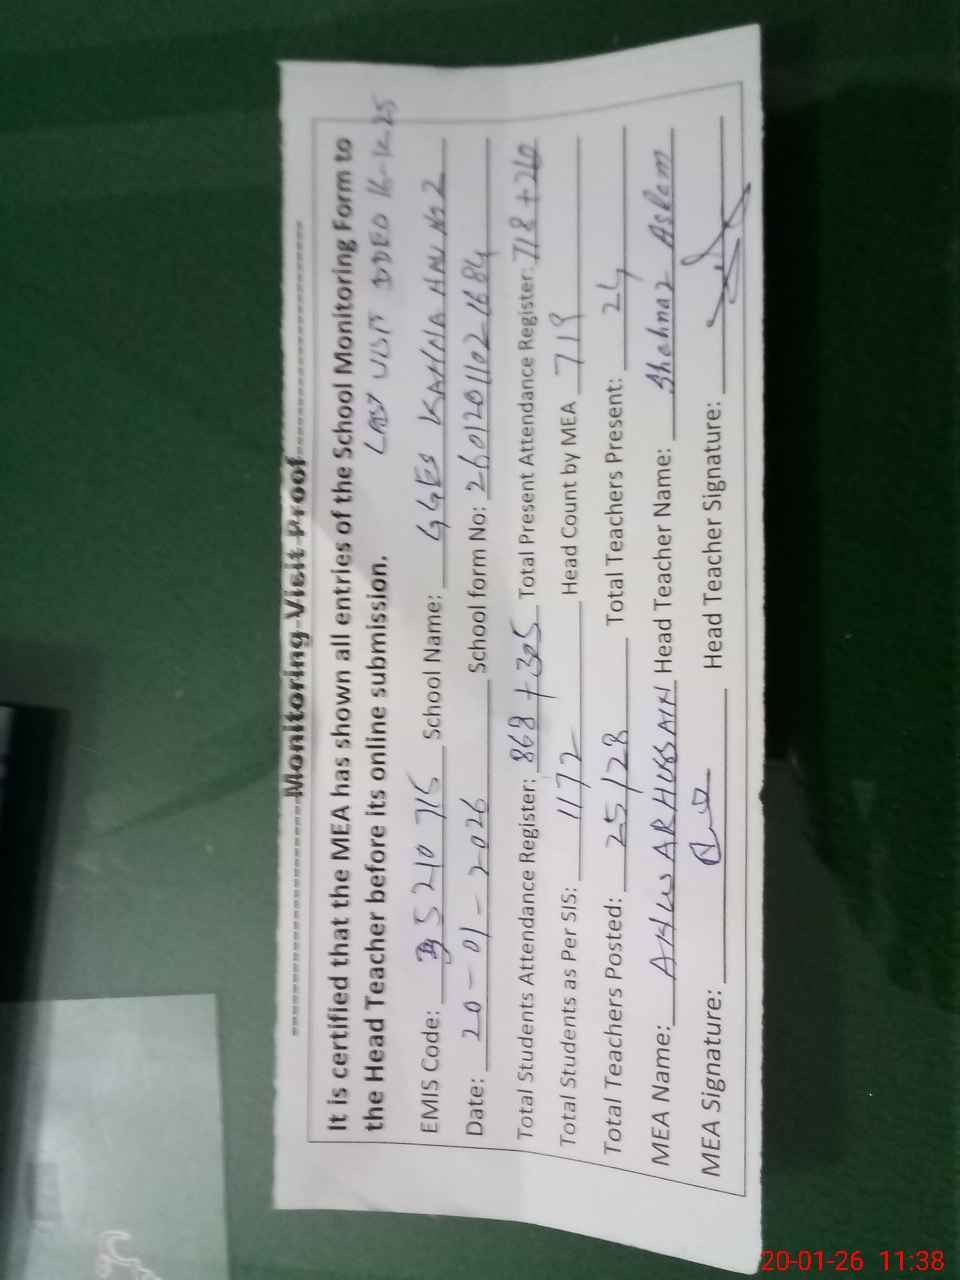 Monitoring Visit Proof
It is certified that the MEA has shown all entries of the School Monitoring Form to
the Head Teacher before its online submission. LAST VISIT DDEO 16-12-25
EMIS Code: 35210715 School Name: GGES KAHNA NAU No 2
Date: 20-01-2026 School form No: 26012011021684
Total Students Attendance Register: 868+305 Total Present Attendance Register: 718+260
Total Students as Per SIS: 1172 Head Count by MEA 719
Total Teachers Posted: 25/28 Total Teachers Present: 24
MEA Name: ANWAR HUSSAIN Head Teacher Name: Shahnaz Aslam
MEA Signature: Head Teacher Signature:
20-01-26 11:38